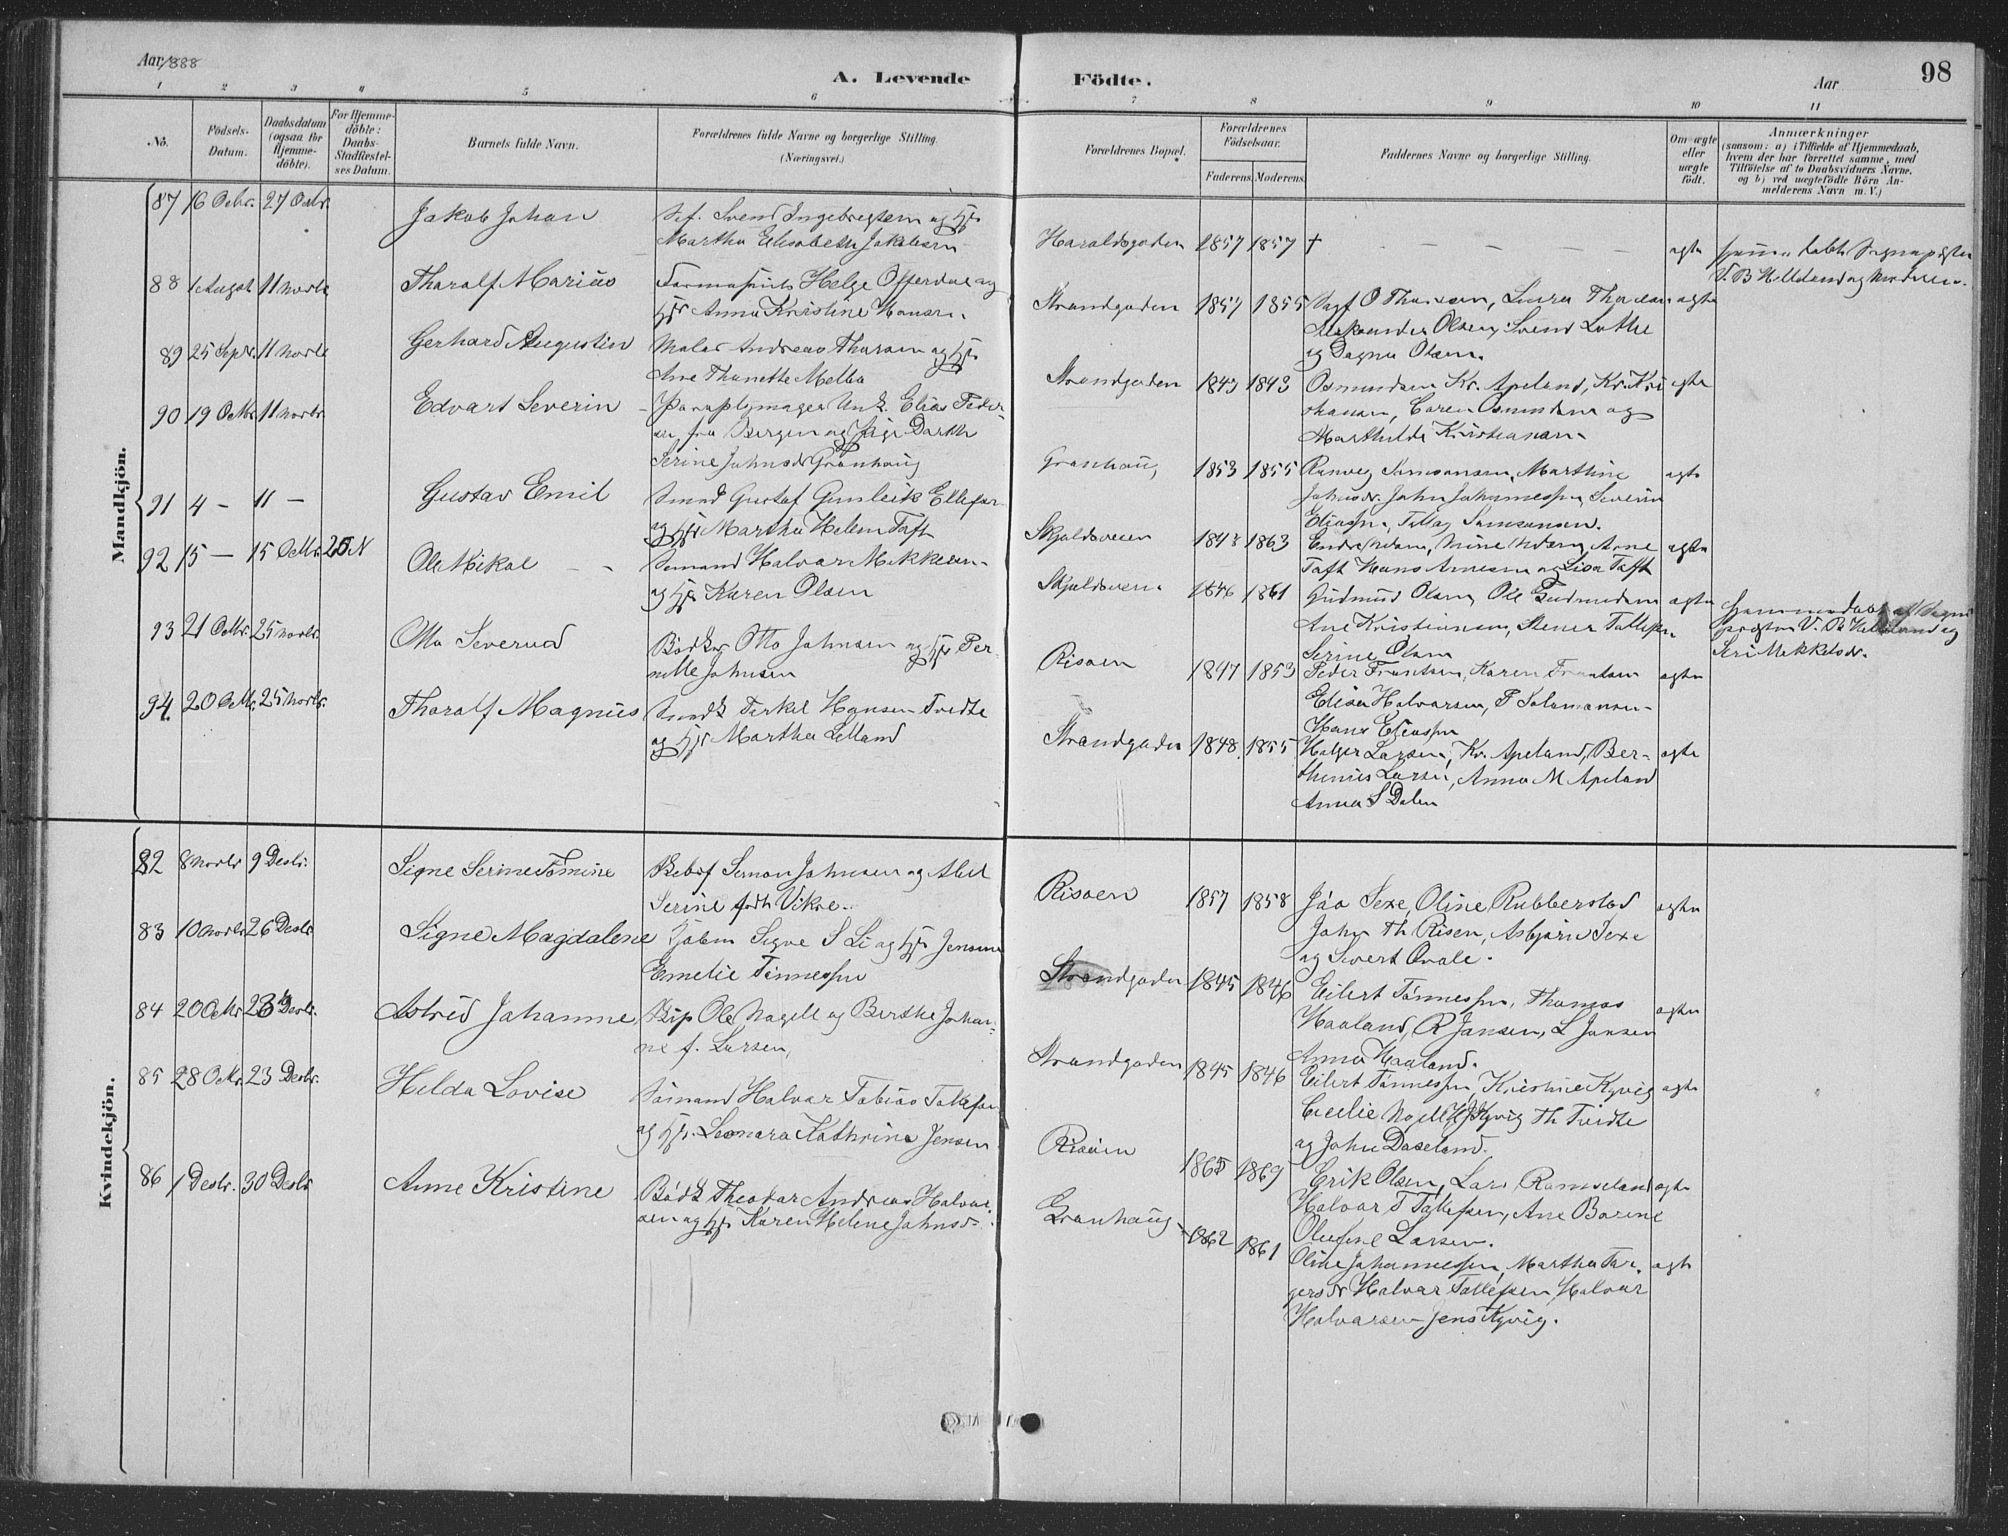 Aar 1888
A. Levende Födte.
Aar
98
1 2 3 4 5 6 7 8 9 10 11
No.
Födsels-Datum.
Daabsdatum (ogsaa for Hjemme-döbte).
For Hjemme-döbte: Daabs-Stadfæstel-ses Datum.
Barnets fulde Navn.
Forældrenes fulde Navne og borgerlige Stilling.
(Næringsvei.)
Forældrenes Bopæl.
Forældrenes Födselsaar.
Faderens. Moderens.
Faddernes Navne og borgerlige Stilling.
Om ægte eller uægte födt.
Anmærkninger
(saasom: a) i Tilfælde af Hjemmedaab,
hvem der har forrettet samme, med
Tilföielse af to Daabsvidners Navne.
og b) ved uægtefödte Börn An-
melderens Navn m. V.)
Mandkjön.
87 16 Octbr. 27 Octbr. Jakob Johan
Svend Ingebregtsen og Hst
Martha Elisabeth Jakobsen
Haraldsgaden 1857 1857 † — — — — — ægte
V. B. Helleland og
88 1 August 11 Novbr Tharalf Marius
Helge Offerdal og
Hst Anna Kristine Hansen
Strandgaden 1857 1855 O Thorsen, Laura Thorsen ægte
Olsen, Svend Lothe
og Dagna Olsen.
89 25 Sept. 11 Novbr Gerhard Augustin
Maler Andreas Thorsen og Hst
Ane Thonette Melbo
Strandgaden 1843 1843 Osmundsen Kr. Apeland, Kr. Kri
Caren Osmundsen og
Marthilde Kristiansen
ægte
90 19 Octbr. 11 Novbr. Edvart Severin
Paraplymager Unk. Elias Peder-
sen fra Bergen og Pige Dorthe
Serine Johnsdr Grønhaug
Grønhaug 1853 1855 Samsonsen, Marthine
Johnsdr. John Johannessen, Severin
Eliassen, Samsonsen.
ægte
91 4 — 11 — Gustav Emil
Smed Gustaf Gunleik Ellefsen
og Hst Martha Helene Taft
Skjoldsveien 1848 1863 Arne
Taft Hans Arnesen og Lisa Taft
ægte
92 15 — 15 Octbr. 25 N Ole Mikal
Sømand Halvar Mikkelsen
og Hst Karen Olsen
Skjoldsveien 1846 1861 Gudmund Olsen, Ole Gudmundsen
Ane Kristiansen, Stener Tollefsen
Serine Olsen
ægte
V. B. Helleland og
Siri Mikkelsdr.
93 21 Octbr. 25 Novbr. Otto Severud
Bødker Otto Johnsen og Hst Per-
nille Johnsen
Risøen 1847 1853 Peder Frantsen, Karen Frantsen
Elisa Halvorsen, P Salamonsen
Hans Eliassen
ægte
94. 20 Octbr. 25 Novbr. Tharalf Magnus
Smed Torkel Hansen Tvedte
og Hst Martha Lilland
Strandgaden 1848. 1855 Holger Larsen, Kr. Apeland, Ber-
thinius Larsen, Anna M Apeland
Anna S Dalen
ægte
Kvindekjön.
82 8 Novbr 9 Desbr. Signe Serine Tomine
Simon Johnsen og Abel
Serine født Vikse.
Risøen 1857 1858 Jóa Sexe, Oline Rubberstad
John Th Risøen, Asbjørn Sexe
og Sivert Ovale.
ægte
83 10 Novbr 26 Desbr. Signe Magdalene
Sigve S Li og Hst Jensine
Emelie Tønnessen
Strandgaden 1845 1846 Eilert Tønnessen, Thomas
Haaland, R Jansen, L Jansen
Anna Haaland.
ægte
84 20 Octbr 26 Desbr. Astrid Johanne
Ole Nagell og Berthe Johan-
ne f. Larsen,
Strandgaden 1845 1846 Eilert Tønnessen, Kristine Kyvig
Cecilie Nagell, Kyvig Th Tvedte
og John Daseland.
ægte
85 28 Octbr. 23 Desbr. Helda Lovise
Sømand Halvar Tobias Tollefsen
og Hst. Leonora Kathrine Jensen
Risøen 1865 1869 Erik Olsen, Lars
Halvar T Tollefsen, Ane Borine
Olufine Larsen.
ægte
86 1 Desbr. 30 Desbr Anne Kristine
Bødk. Theodor Andreas Halvor
sen og Hst Karen Helene Johnsdr.
Grønhaug 1862 1861 Oline Johannessen, Martha Tor-
gersdr Halvar Tollefsen, Halvar
Halvorsen Jens Kyvig.
ægte